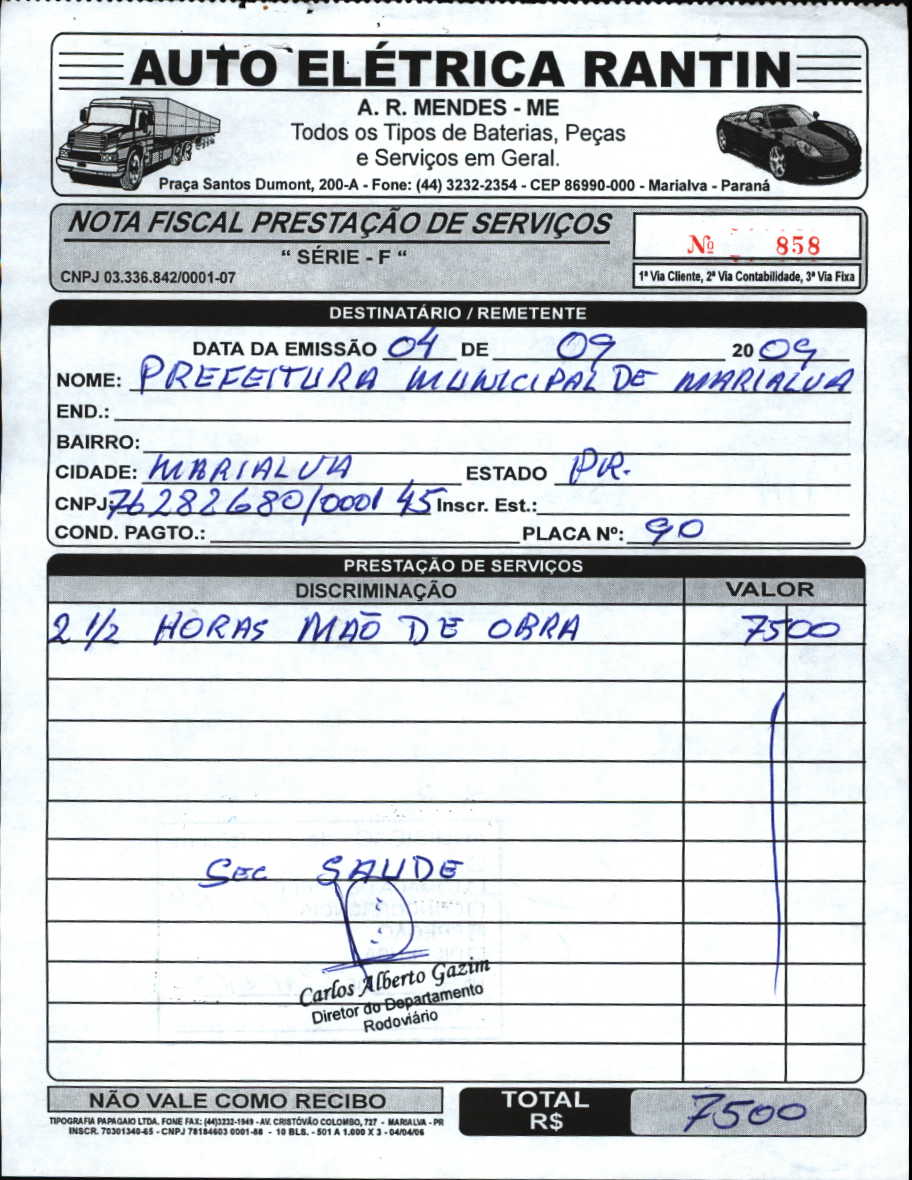 AUTO ELÉTRICA RANTIN
A. R. MENDES - ME
Todos os Tipos de Baterias, Peças
e Serviços em Geral.
Praça Santos Dumont, 200-A - Fone: (44) 3232-2354 - CEP 86990-000 - Marialva - Paraná
NOTA FISCAL PRESTAÇÃO DE SERVIÇOS
“ SÉRIE - F “
Nº 858
CNPJ 03.336.842/0001-07
1ª Via Cliente, 2ª Via Contabilidade, 3ª Via Fixa
DESTINATÁRIO / REMETENTE
DATA DA EMISSÃO 04 DE 09 2009
NOME: PREFEITURA MUNICIPAL DE MARIALVA
END.:
BAIRRO:
CIDADE: MARIALVA ESTADO PR.
CNPJ: 76282680/0001 45 Inscr. Est.:
COND. PAGTO.: PLACA Nº: 90
PRESTAÇÃO DE SERVIÇOS
DISCRIMINAÇÃO VALOR
2 1/2 HORAS MÃO DE OBRA 7500
SEC SAUDE
Carlos Alberto Gazim
Diretor do Departamento
Rodoviário
NÃO VALE COMO RECIBO
TOTAL R$ 7500
TIPOGRAFIA PAPAGAIO LTDA. FONE FAX: (44)3232-1949 - AV. CRISTÓVÃO COLOMBO, 727 - MARIALVA - PR
INSCR. 70301340-65 - CNPJ 78184603 0001-86 - 10 BLS. - 501 A 1.000 X 3 - 04/04/06